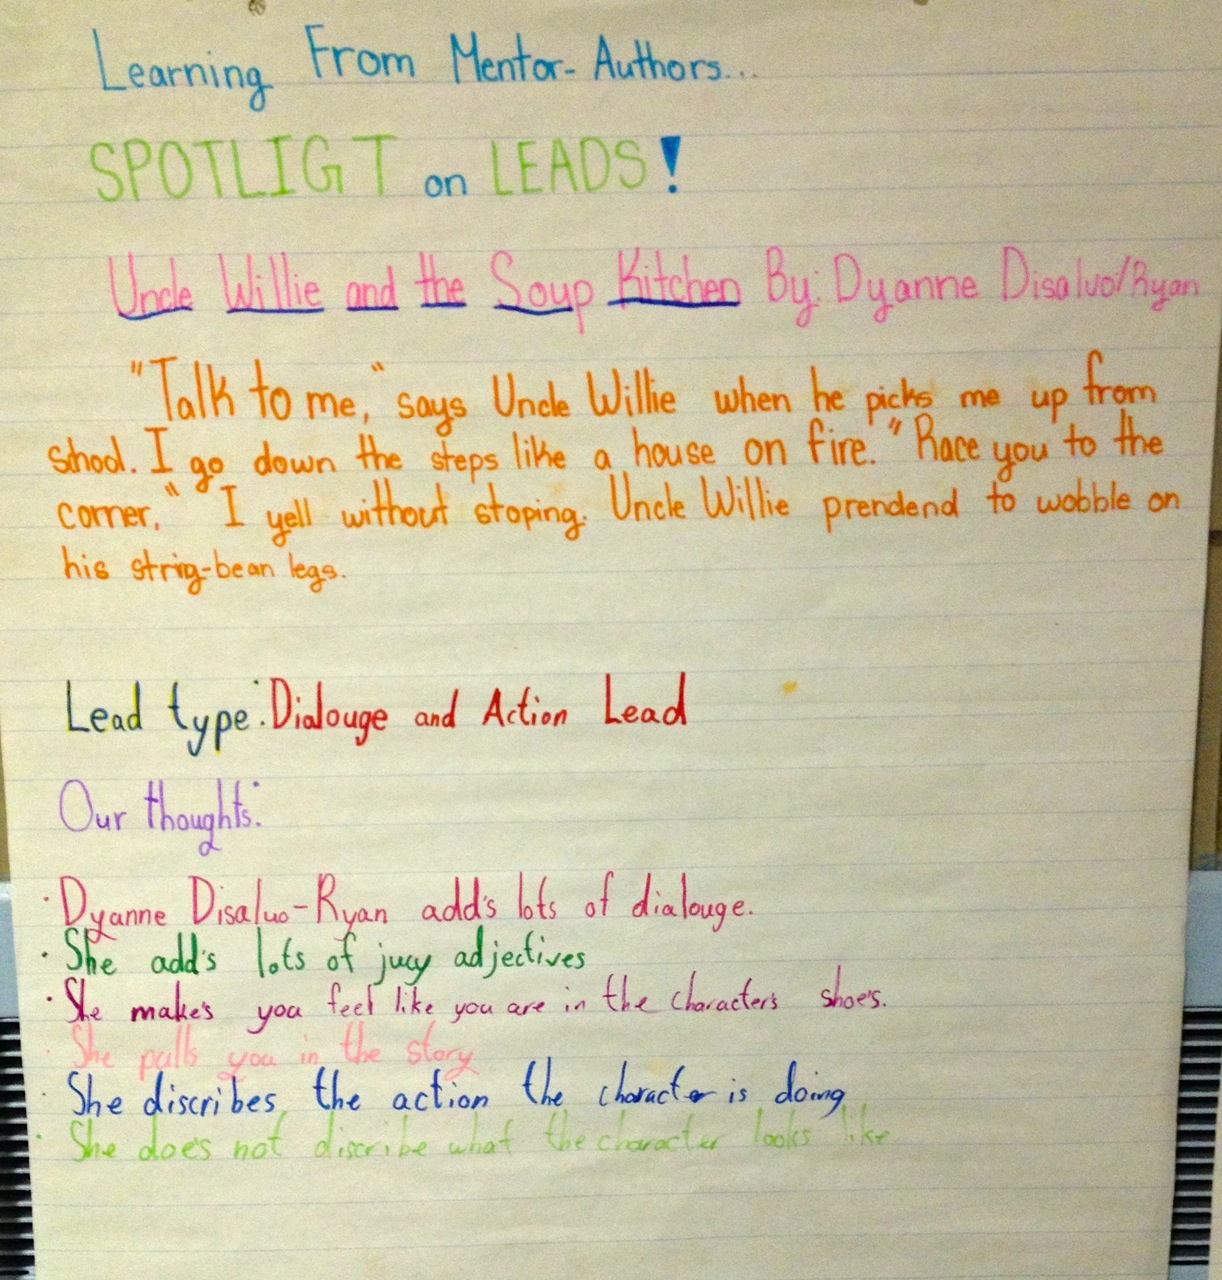 Learning From Mentor-Authors...
SPOTLIGT on LEADS!
Uncle Willie and the Soup Kitchen By: Dyanne Disalvo/Ryan
"Talk to me," says Uncle Willie when he picks me up from
school. I go down the steps like a house on fire. "Race you to the
corner," I yell without stoping. Uncle Willie prendend to wobble on
his strig-bean legs.
Lead type: Dialouge and Action Lead
Our thoughts:
· Dyanne Disalvo-Ryan add's lots of dialouge.
· She add's lots of jucy adjectives
· She make's you feel like you are in the character's shoe's.
· She pulls you in the story
· She discribes the action the character is doing
· She doe's not discribe what the character looks like